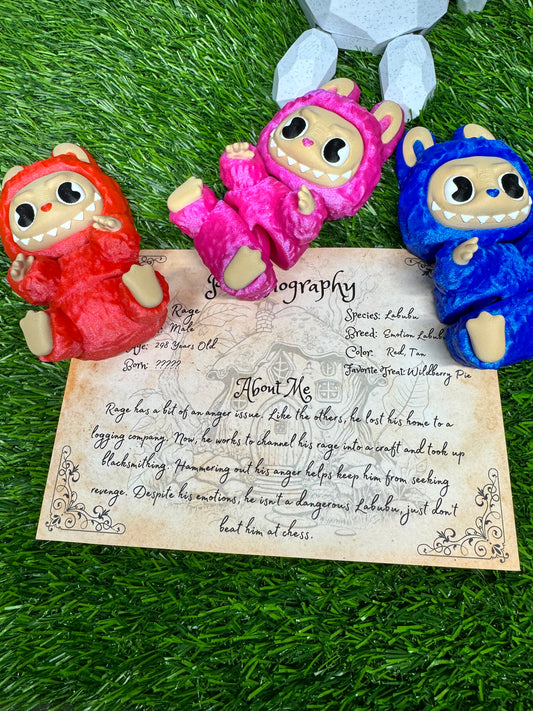 Rage
Species: Labubu
Male
Breed: Emotion Labubu
298 Years Old
Color: Red, Tan
Born: ?????
Favorite Treat: Wildberry Pie
About Me
Rage has a bit of an anger issue. Like the others, he lost his home to a
logging company. Now, he works to channel his rage into a craft and took up
blacksmithing. Hammering out his anger helps keep him from seeking
revenge. Despite his emotions, he isn't a dangerous Labubu, just don't
beat him at chess.